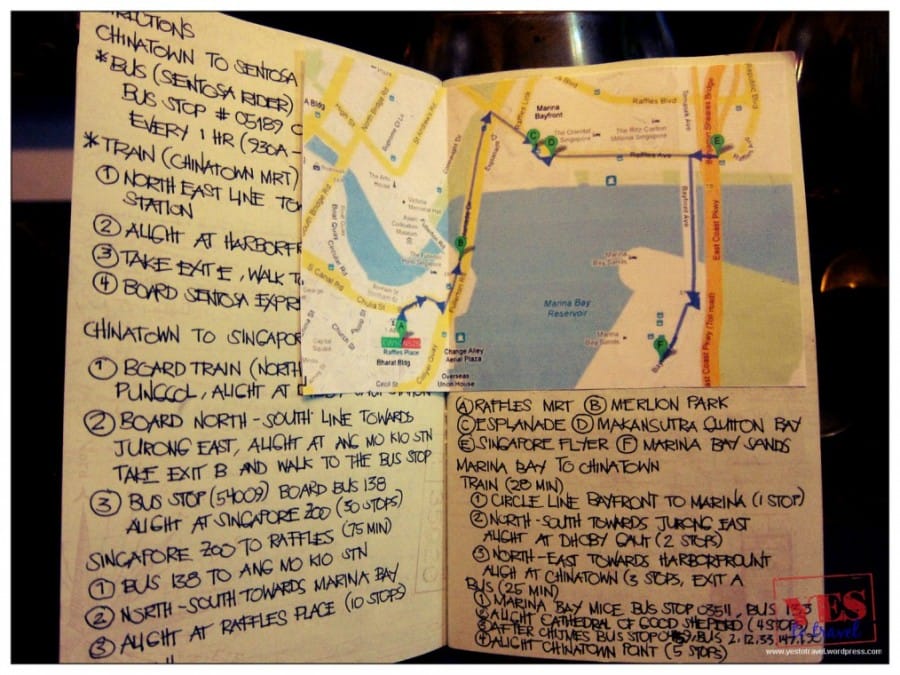 DIRECTIONS
CHINATOWN TO SENTOSA
* BUS (SENTOSA RIDER)
BUS STOP # 05189
EVERY 1 HR (930A -
* TRAIN (CHINATOWN MRT)
① NORTH EAST LINE TOW
STATION
② ALIGHT AT HARBORFR
③ TAKE EXIT E, WALK T
④ BOARD SENTOSA EXPR
CHINATOWN TO SINGAPOR
① BOARD TRAIN (NORTH
PUNGGOL, ALIGHT AT
② BOARD NORTH-SOUTH LINE TOWARDS
JURONG EAST, ALIGHT AT ANG MO KIO STN
TAKE EXIT B AND WALK TO THE BUS STOP
③ BUS STOP (54009) BOARD BUS 138
ALIGHT AT SINGAPORE ZOO (30 STOPS)
SINGAPORE ZOO TO RAFFLES (75 MIN)
① BUS 138 TO ANG MO KIO STN
② NORTH-SOUTH TOWARDS MARINA BAY
③ ALIGHT AT RAFFLES PLACE (10 STOPS)
A Bldg
High St
North Bridge Rd
Supreme Ct Ln
St Andrew's
The Arts House
Victoria Memorial Hall
Asian Civilisation Museum
Boat Quay
Circular Rd
S Canal Rd
Chulia St
Church St
George
Capital Square
A
Raffles Place
Bharat Bldg
Cecil St
Collyer Quay
Change Alley Aerial Plaza
Overseas Union House
B
Raffles Link
Marina Bayfront
C
D
The Oriental Singapore
The Ritz-Carlton Millenia Singapore
Raffles Blvd
Raffles Ave
Temasek Ave
Republic Blvd
E
Bayfront Ave
East Coast Pkwy
East Coast Pkwy (Toll road)
Marina Bay Sands
Marina Bay Reservoir
Marina Bay Sands
F
Ⓐ RAFFLES MRT Ⓑ MERLION PARK
Ⓒ ESPLANADE Ⓓ MAKANSUTRA GLUTTON BAY
Ⓔ SINGAPORE FLYER Ⓕ MARINA BAY SANDS
MARINA BAY TO CHINATOWN
TRAIN (28 MIN)
① CIRCLE LINE BAYFRONT TO MARINA (1 STOP)
② NORTH-SOUTH TOWARDS JURONG EAST
ALIGHT AT DHOBY GAUT (2 STOPS)
③ NORTH-EAST TOWARDS HARBORFROUNT
ALIGH AT CHINATOWN (3 STOPS, EXIT A
BUS (25 MIN)
① MARINA BAY MICE BUS STOP 03511, BUS 133
② ALIGHT CATHEDRAL OF GOOD SHEPERD (4 STOPS)
③ AFTER CHIJMES BUS STOP BUS 2, 12, 33, 147, 190
④ ALIGHT CHINATOWN POINT (5 STOPS)
YES
to travel
www.yestotravel.wordpress.com